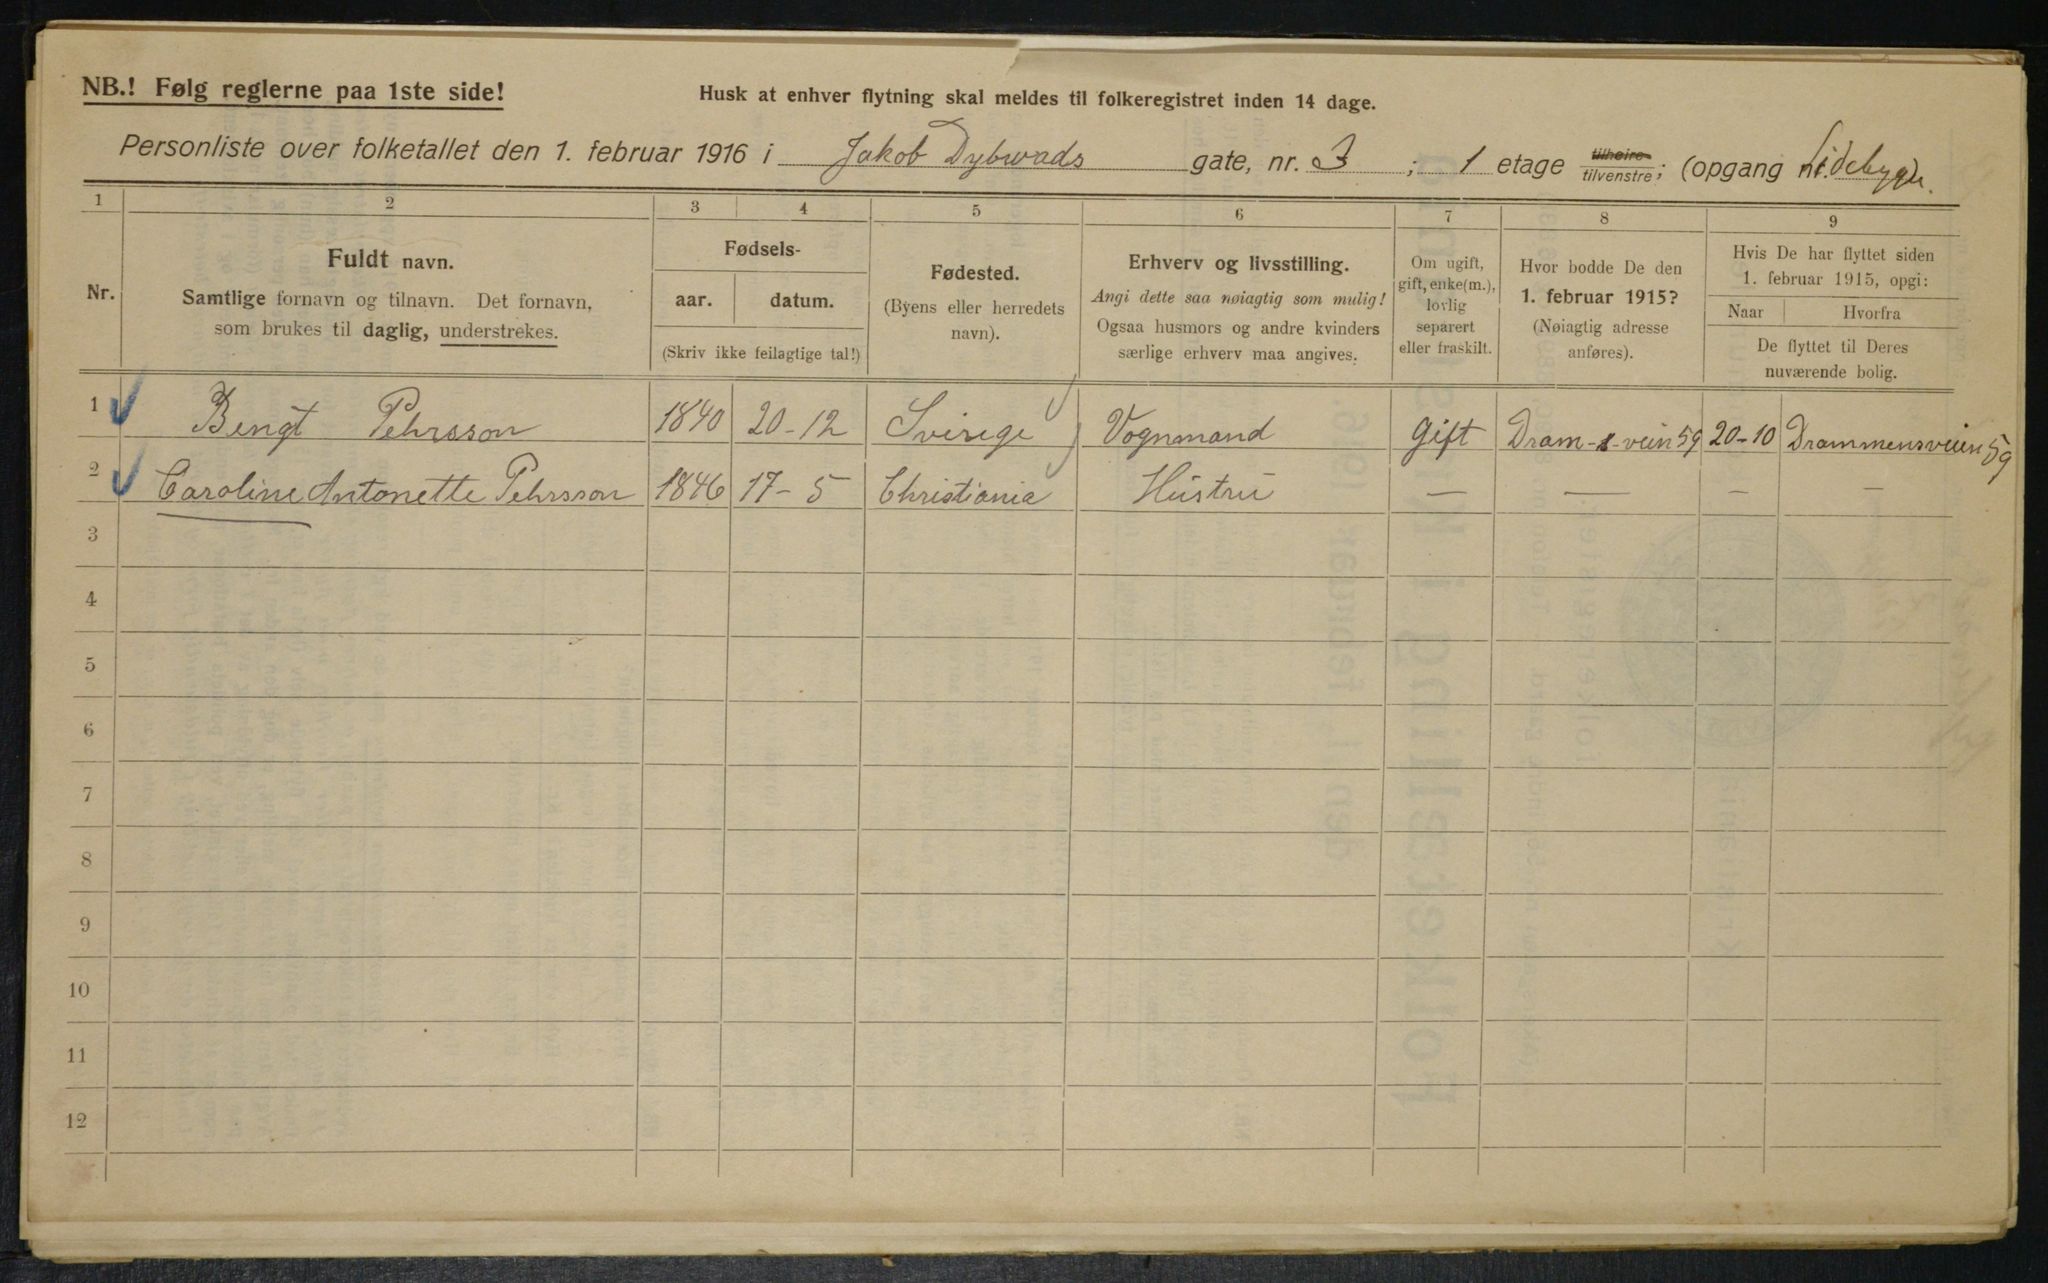 NB.! Følg reglerne paa 1ste side!
Husk at enhver flytning skal meldes til folkeregistret inden 14 dage.
Personliste over folketallet den 1. februar 1916 i Jakob Dybwads gate, nr. 3; 1 etage tilhøire tilvenstre; (opgang nr. Sidebygn.
1 2 3 4 5 6 7 8 9
Nr.
Fuldt navn.
Samtlige fornavn og tilnavn. Det fornavn,
som brukes til daglig, understrekes.
Fødsels-
aar. datum.
(Skriv ikke feilagtige tal!)
Fødested.
(Byens eller herredets
navn).
Erhverv og livsstilling.
Angi dette saa nøiagtig som mulig!
Ogsaa husmors og andre kvinders
særlige erhverv maa angives.
Om ugift,
gift, enke(m.),
lovlig
separert
eller fraskilt.
Hvor bodde De den
1. februar 1915?
(Nøiagtig adresse
anføres).
Hvis De har flyttet siden
1. februar 1915, opgi:
Naar Hvorfra
De flyttet til Deres
nuværende bolig.
1 Bengt Pehrsson 1840 20-12 Sverige Vognmand Gift Dram-s-vein 59 20-10 Drammensveien 59
2 Caroline Antonette Pehrsson 1846 17-5 Christiania Hustru — — — —
3
4
5
6
7
8
9
10
11
12